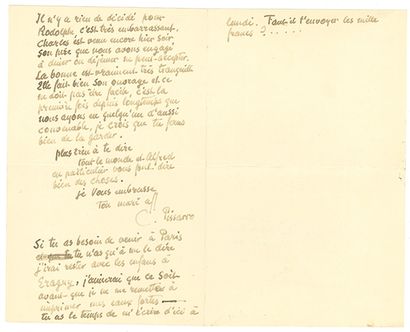 Il n'y a rien de décidé pour
Rodolphe c'est très embarrassant.
Charles est venu encore hier soir
son père que nous avons engagé
à dîner ou déjeuner ne peut accepter.
La bonne est vraiment très tranquille
Elle fait bien son ouvrage et ce
ne doit pas être facile, c'est la
première fois depuis longtemps que
nous ayons eu quelqu'une d'aussi
convenable, je crois que tu feras
bien de la garder.
plus rien à te dire
tout le monde et Alfred
en particulier vous font dire
bien des choses.
je vous embrasse
ton mari aff
C. Pissarro
Si tu as besoin de venir à Paris
tu n'as qu'à me le dire
j'irai rester avec les enfants à
Eragny, j'aimerai que ce soit
avant que je ne me remette à
imprimer mes eaux fortes —
tu as le temps de m'écrire d'ici à
lundi. Faut-il t'envoyer les mille
francs ?.....